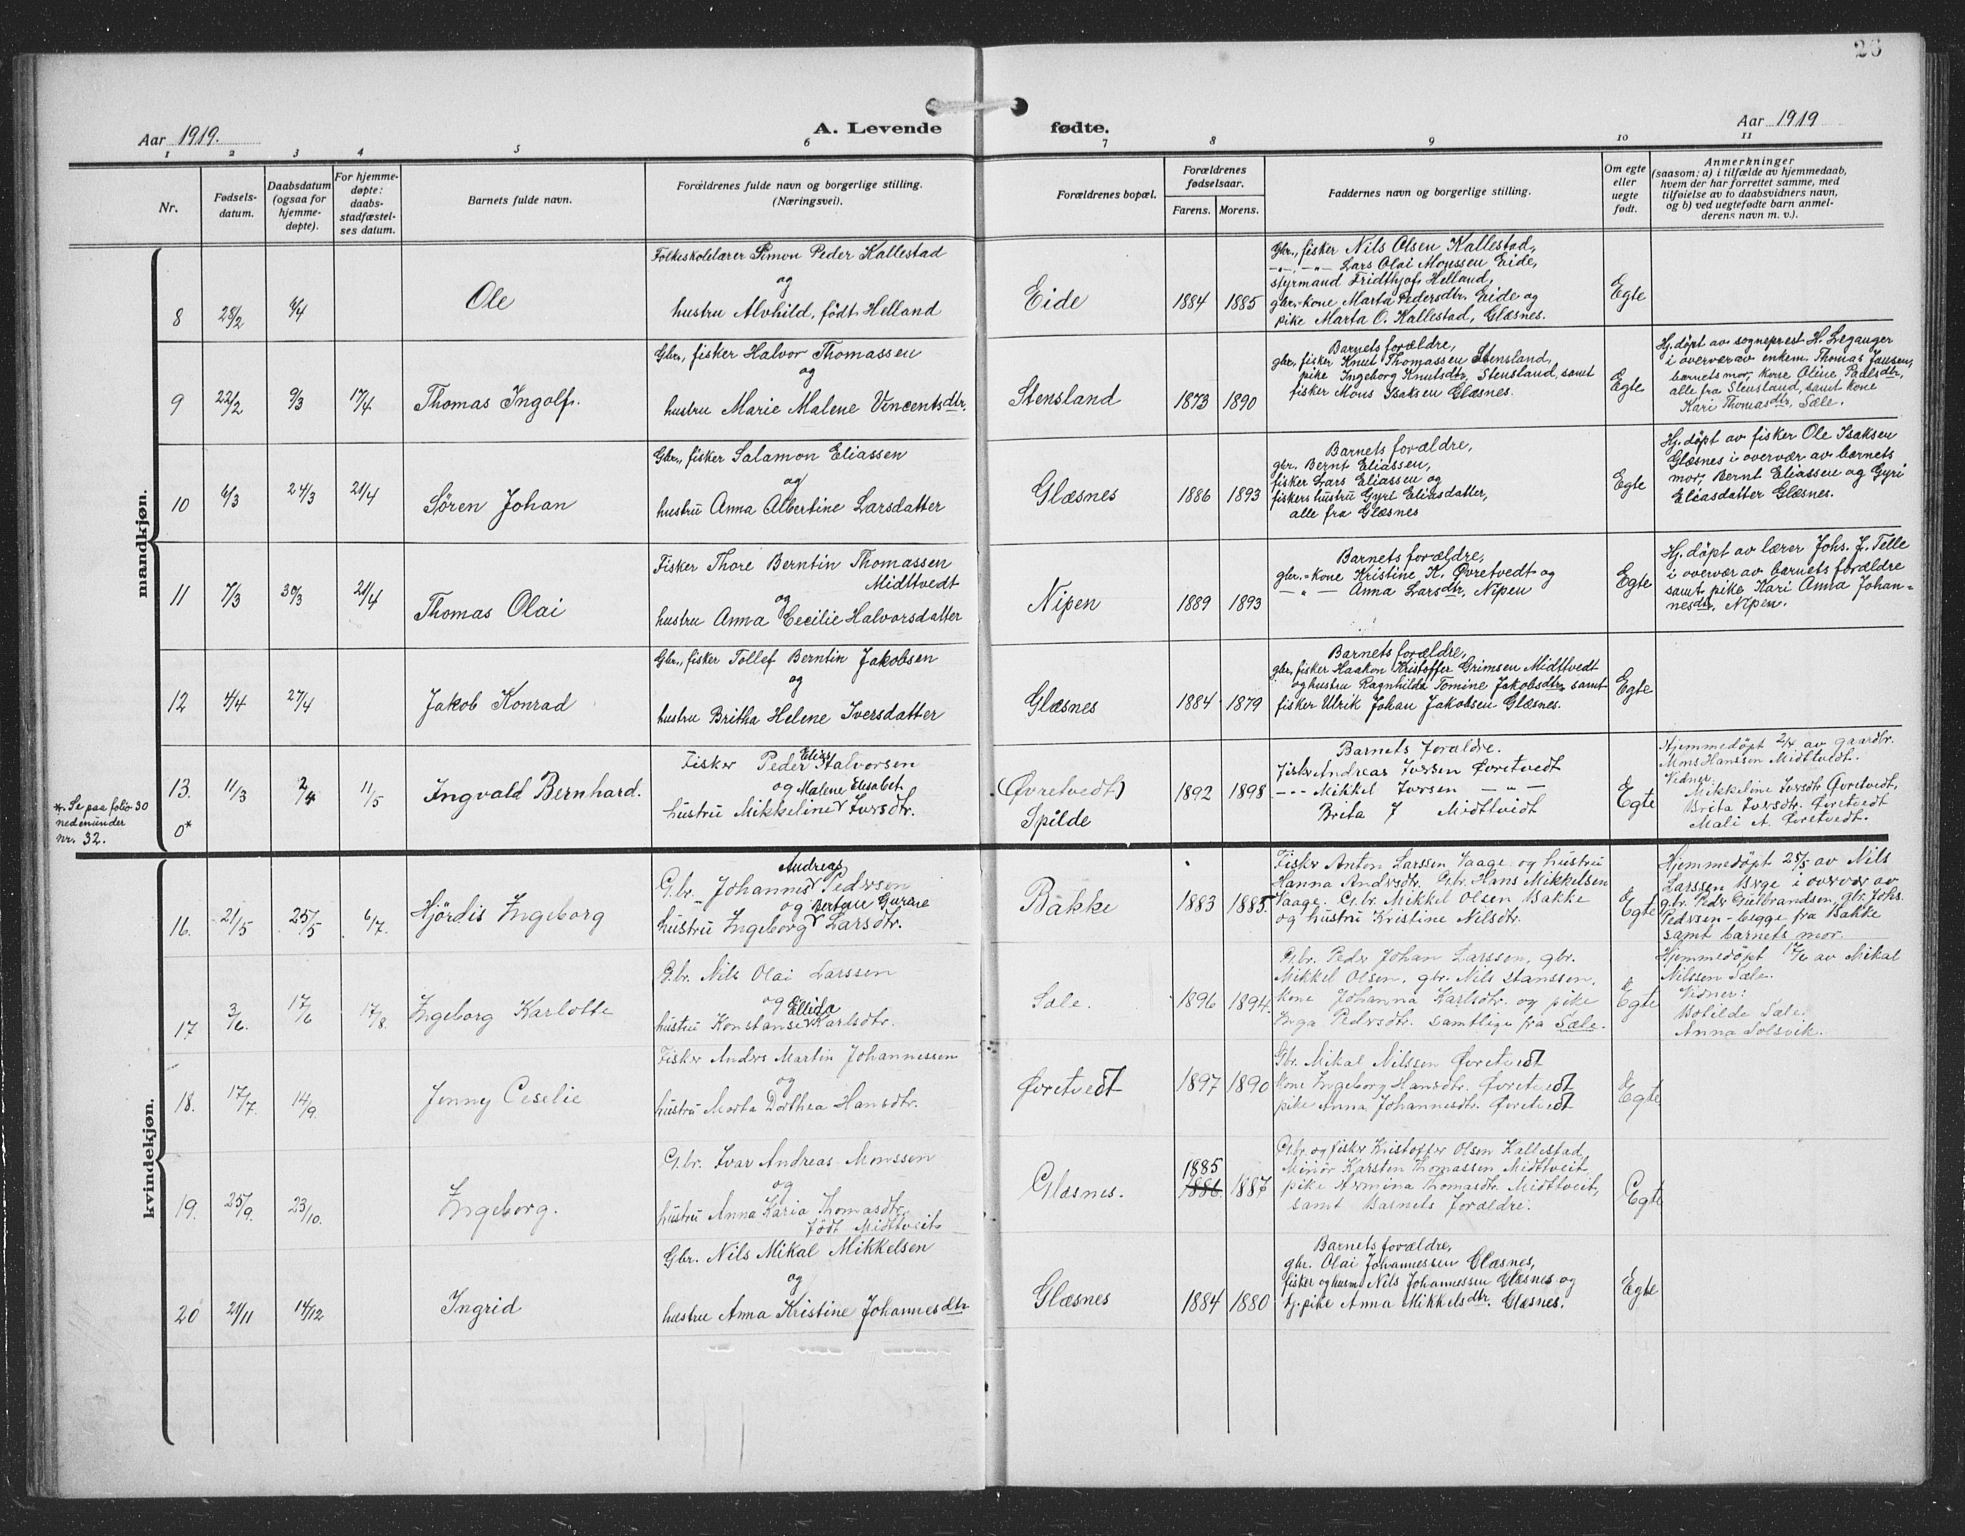 26
Aar 1919.
A. Levende fødte.
Aar 1919
1 2 3 4 5 6 7 8 9 10 11
Nr.
Fødsels-
datum.
Daabsdatum
(ogsaa for
hjemme-
døpte).
For hjemme-
døpte:
daabs-
stadfæstel-
ses datum.
Barnets fulde navn.
Forældrenes fulde navn og borgerlige stilling.
(Næringsvei).
Forældrenes bopæl.
Forældrenes
fødselsaar.
Farens. Morens.
Faddernes navn og borgerlige stilling.
Om egte
eller
uegte
født.
Anmerkninger
(saasom: a) i tilfælde av hjemmedaab,
hvem der har forrettet samme, med
tilføielse av to daabsvidners navn,
og b) ved uegtefødte barn anmel-
derens navn m. v.).
mandkjøn.
8
28/2
6/4
Ole
Folkeskolelærer Simon Peder Kallestad
og
hustru Alvhild, født Helland
Eide
1884
1885
Gbr., fisker Nils Olsen Kallestad,
-„- -„- Lars Olai Moyssen Eide,
styrmand Fridthjof Helland,
gbr.-kone Marta Pedersdtr. Eide og
pike Marta O. Kallestad, Glæsnes.
Egte
9
22/2
9/3
17/4
Thomas Ingolf.
Gbr., fisker Halvor Thomassen
og
hustru Marie Malene Vincentsdtr.
Stensland
1873
1890
Barnets forældre,
gbr., fisker Knut Thomassen Stensland,
pike Ingeborg Knutsdtr. Stensland, samt
fisker Mons Isaksen Glæsnes.
Egte
Hj. døpt av sogneprest H. Leganger
i overvær av enkem. Thomas Jansen,
barnets mor, kone Oline Paalsdtr,
alle fra Stensland, samt kone
Kari Thomasdtr, Sæle.
10
6/3
24/3
21/4
Søren Johan
Gbr., fisker Salamon Eliassen
og
hustru Anna Albertine Larsdatter
Glæsnes
1886
1893
Barnets forældre,
gbr. Bernt Eliassen,
fisker Lars Eliassen og
fiskers hustru Gyri Eliasdatter,
alle fra Glæsnes
Egte
Hj. døpt av fisker Ole Isaksen
Glæsnes i overvær av barnets
mor, Bernt Eliassen og Gyri
Eliasdatter Glæsnes.
11
7/3
30/3
21/4
Thomas Olai
Fisker Thore Berntin Thomassen
Midttvedt
og
hustru Anna Cecilie Halvorsdatter
Nipen
1889
1893
Barnets forældre,
gbr.-kone Kristine K. Øvretvedt og
-„- Anna Larsdtr, Nipen
Egte
Hj. døpt av lærer Johs. J. Telle
i overvær av barnets forældre
samt pike Kari Anna Johan-
nesdtr, Nipen.
12
4/4
27/4
Jakob Konrad
Gbr., fisker Tollef Berntin Jakobsen
og
hustru Britha Helene Iversdatter
Glæsnes
1884.
1879
Barnets forældre,
gbr., fisker Haakon Kristoffer Grimsen Midttvedt
og hustru Ragnhilda Tomine Jakobsdtr. samt
fisker Ulrik Johan Jakobsen Glæsnes.
Egte
*. Se paa folio 30
nedenunder
nr. 32.
13.
0*
11/3
2/4
11/5
Ingvald Bernhard.
Elias
Fisker Peder Halvorsen
og Malene Elisabet
hustru Mikkeline Ivrsdtr.
(Øvretvedt)
Spilde
1892
1898
Barnets forældre.
Fisker Andreas Iversen Øvretvedt
-„- Mikkel Iversen -„-
Brita J Midttvidt
Egte
Hjemmedøpt 2/4 av gaardbr.
Mons Hanssen Midttvedt.
Vidner:
Mikkeline Ivrsdtr Øvretvedt,
Brita Ivrsdtr. Øvretvedt
Mali A. Øvretvedt.
kvindekjøn.
16.
21/5
25/5
6/7.
Hjördis Ingeborg
Andreas
Gbr. Johannes Pedersen
og Bertine Gurine
hustru Ingeborg Larsdtr.
Bakke
1883
1885.
Fisker Anton Larssen Vaage og hustru
Hanna Andrsdtr. Gbr. Hans Mikkelsen
Vaage. Gbr. Mikkel Olsen Bakke
og hustru Kristine Nilsdtr.
Egte
Hjemmedøpt 25/5 av Nils
Larssen Berge i overvær av
gbr. Peder Gulbrandsen, gbr. Johs.
Pedersen - begge fra Bakke
samt barnets mor.
17
3/6.
17/6
17/8.
Ingeborg Karlotte
Gbr. Nils Olai Larssen
og Ellida
hustru Konstanse Karlsdtr.
Sæle.
1896
1894.
Gbr. Peder Johan Larssen, gbr.
Mikkel Olsen, gbr. Nils Stanssen,
kone Johanna Karlsdtr. og pike
Inga Pedersdtr. samtlige fra Sæle.
Egte
Hjemmedøpt 17/6 av Mikal
Nilssen Sæle.
Vidner:
Botilde Sæle.
Anna Solsvik.
18.
17/7.
14/9.
Jenny Ceselie
Fisker Anders Martin Johannessen
og
hustru Marta Dorthea Hansdtr.
Øvretvedt
1897
1890
Gbr. Mikal Nilssen Øvretvedt
kone Ingeborg Hansdtr. Øvretvedt
pike Anna Johannesdtr. Øvretvedt
Egte
19.
25/9.
23/10.
Ingeborg.
Gbr. Ivar Andreas Monssen
og
hustru Anna Karia Thomasdtr.
født Midttveit
Glæsnes.
1885
1886.
1887
Gbr. og fisker Kristoffer Olsen Kallestad,
Minør Karsten Thomassen Midttveit,
pike Armina Thomasdtr. Midttveit,
samt Barnets Forældre.
Egte
20
21/11
14/12
Ingrid
Gbr. Nils Mikal Mikkelsen
og
hustru Anna Kristine Johannesdtr
Glæsnes
1884
1880
Barnets forældre,
gbr. Olai Johannessen Glæsnes,
fisker og husm. Nils Johannessen Glæsnes og
tj. pike Anna Mikkelsdtr. Glæsnes.
Egte